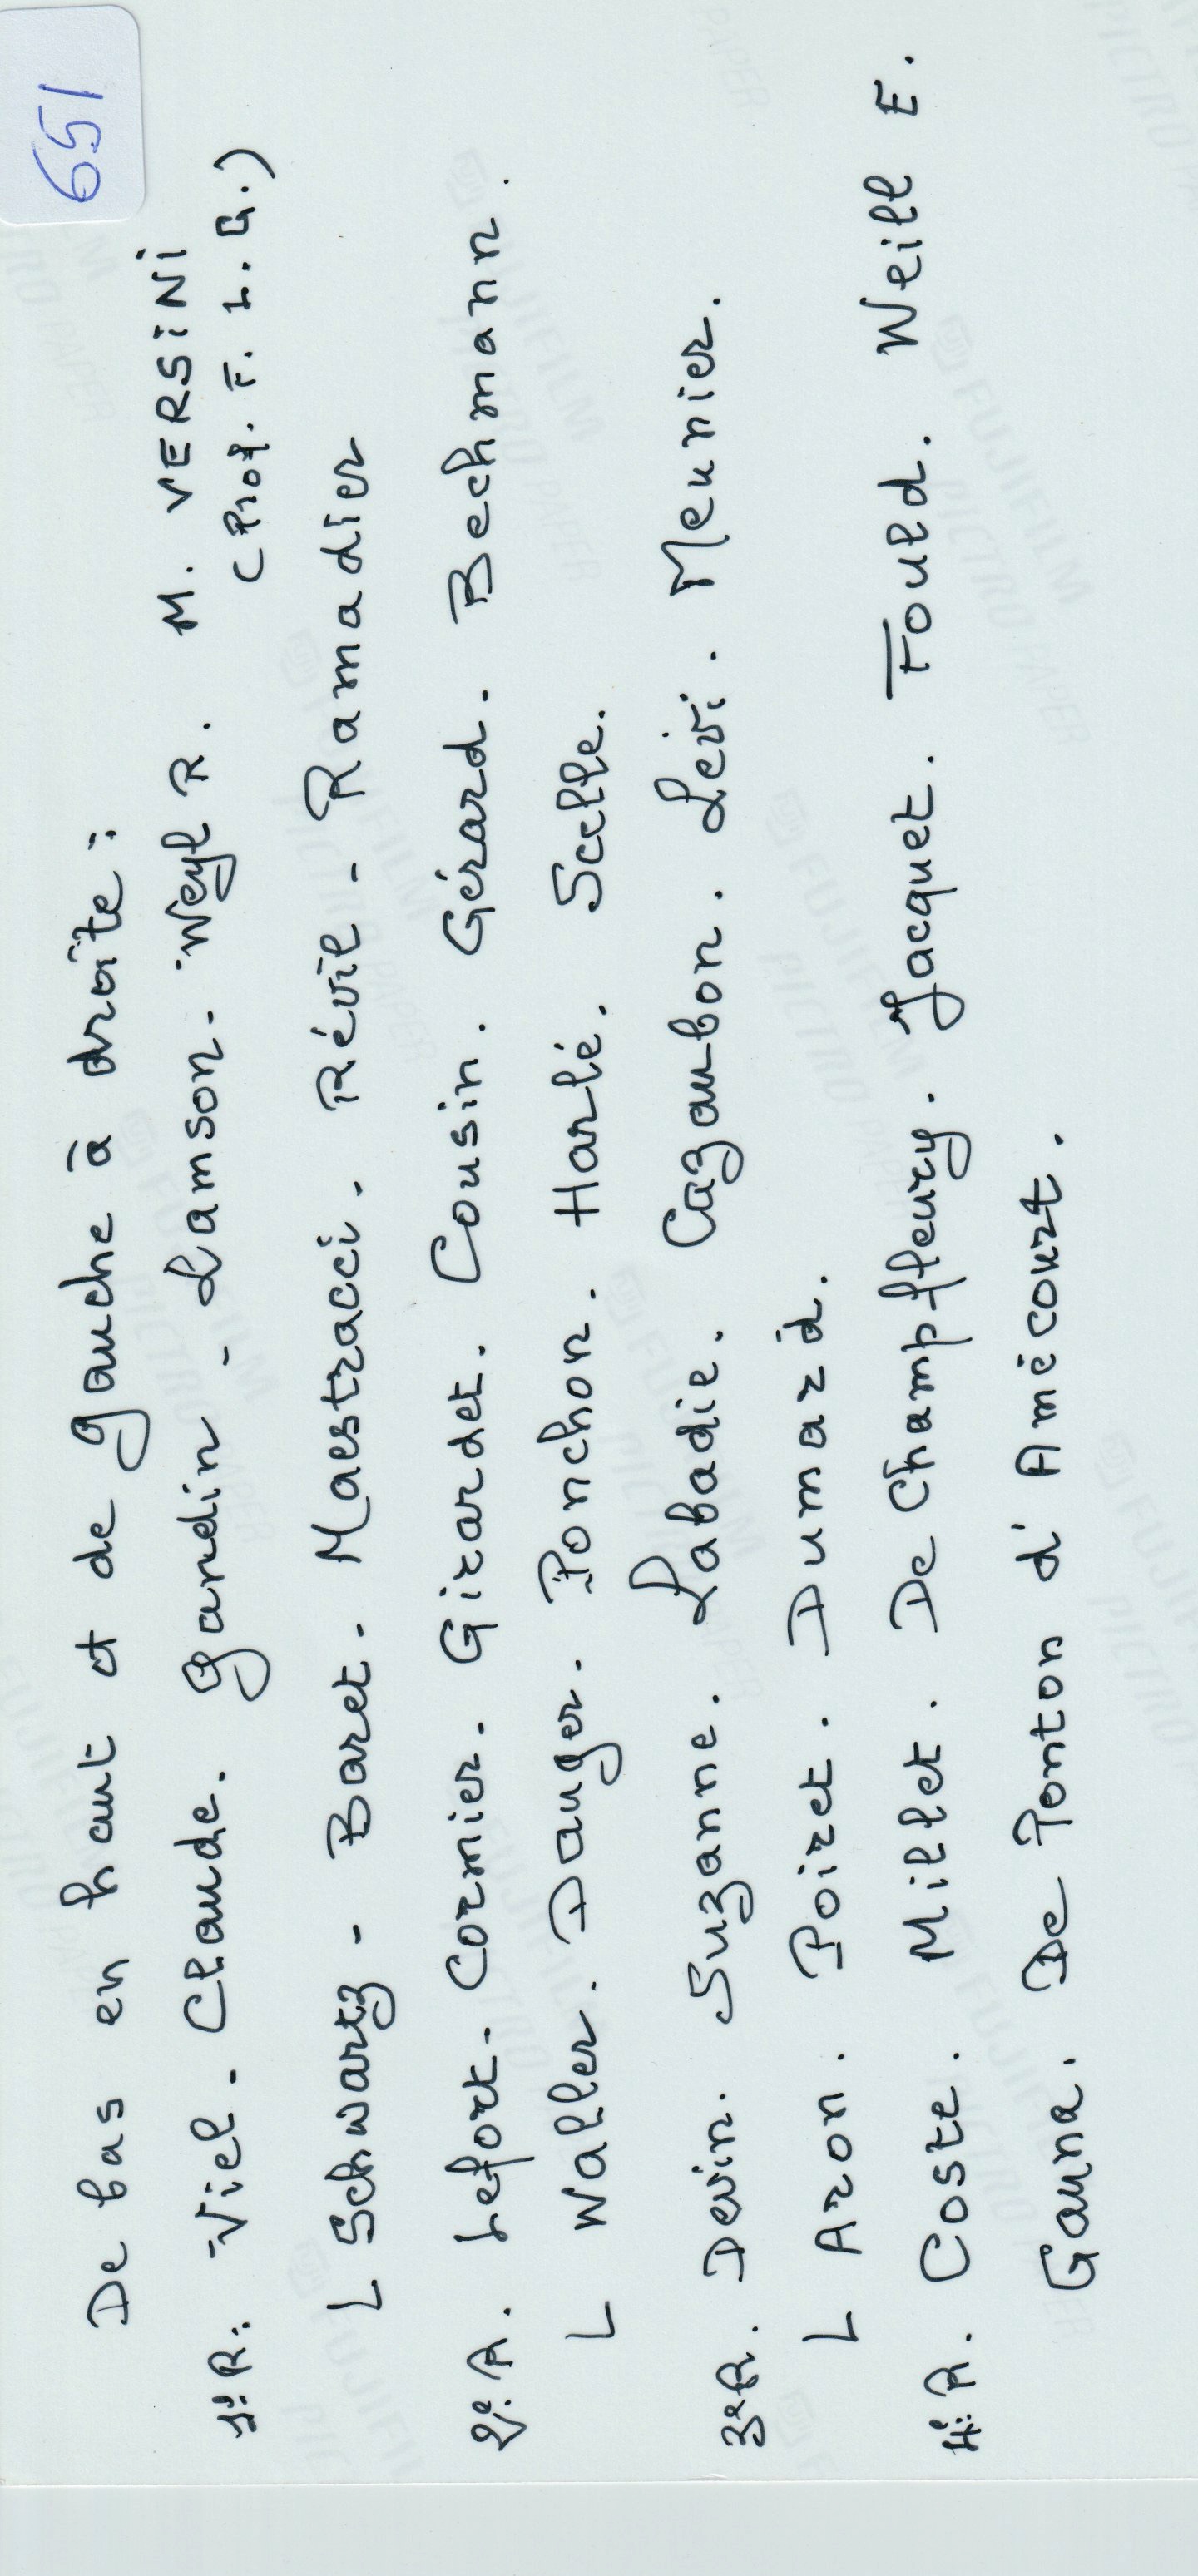 651
De bas en haut et de gauche à droite :
1° R: Viel - Claude. Gandin - Lamson - Weyl R. M. VERSiNi
(Prof. F. L. G.)
L Schwartz - Baret. Maestracci. Révil - Ramadier
2° R. Lefort - Cormier. Girardet. Cousin. Gérard. Bechmann.
L Waller. Dauger. Ponchon. Harlé. Scelle.
3° R. Devin. Suzanne. Labadie. Cazaubon. Levi. Meunier.
L Aron. Poiret. Dumard.
4° R. Coste. Millet. De Champfleury. Jacquet. Fould. Weill E.
Gauna. De Ponton d'Amécourt.